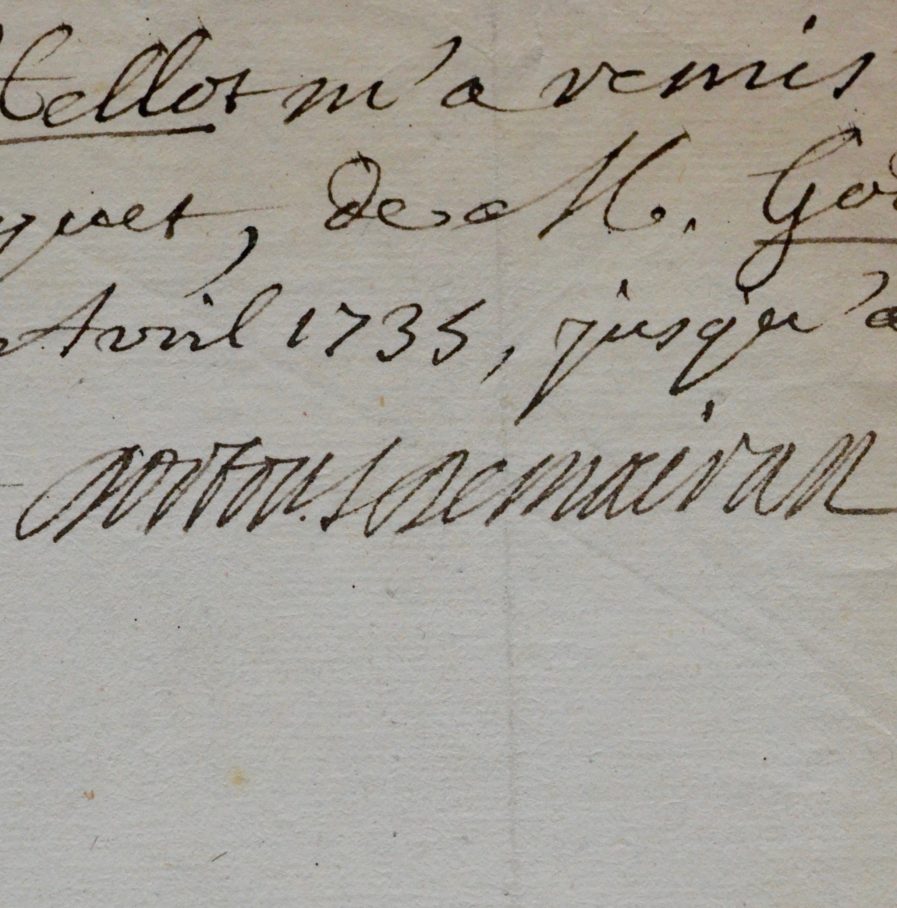 Hellot m'a remis
quet, de M. God
Avril 1735, jusqu'a
Dortous Demairan